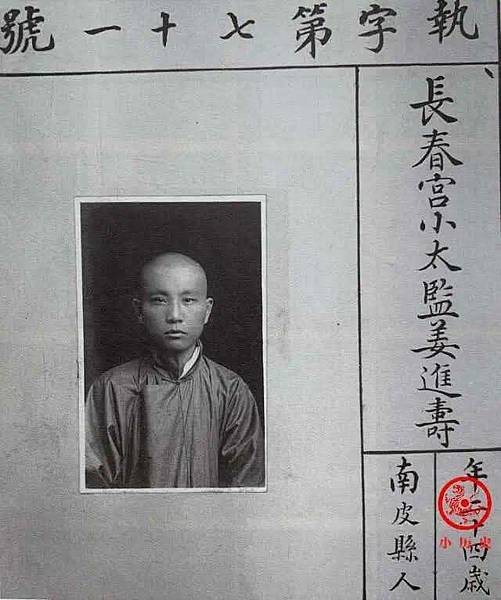 執字第七十一號
長春宮小太監姜進壽
年二十四歲
南皮縣人
小历史